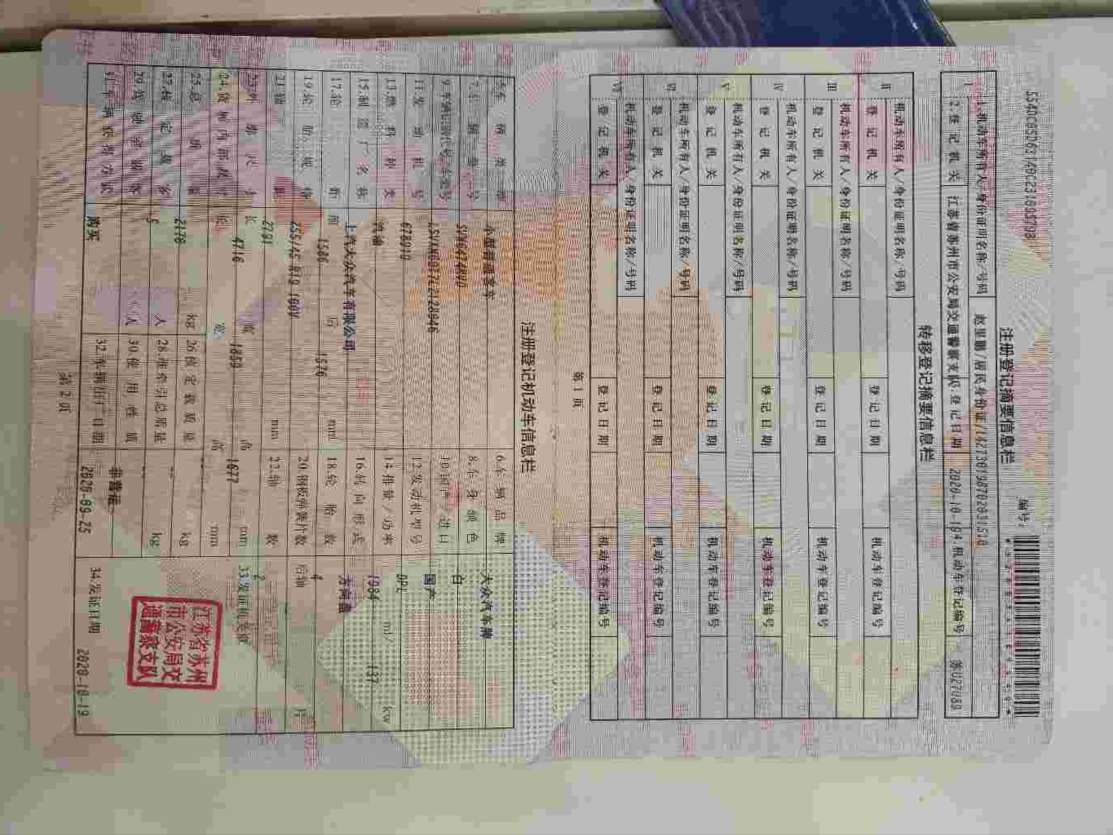 注册登记摘要信息栏
编号:
1.机动车所有人/身份证明名称/号码
2.登记机关 江苏省苏州市公安局交通警察支队 3.登记日期 2020-10-19 4.机动车登记编号
转移登记摘要信息栏
II 机动车所有人/身份证明名称/号码
登记机关 登记日期 机动车登记编号
III 机动车所有人/身份证明名称/号码
登记机关 登记日期 机动车登记编号
IV 机动车所有人/身份证明名称/号码
登记机关 登记日期 机动车登记编号
V 机动车所有人/身份证明名称/号码
登记机关 登记日期 机动车登记编号
VI 机动车所有人/身份证明名称/号码
登记机关 登记日期 机动车登记编号
VII 机动车所有人/身份证明名称/号码
登记机关 登记日期 机动车登记编号
第1页
注册登记机动车信息栏
5.车辆类型 小型普通客车 6.车辆品牌 大众汽车牌
7.车辆型号 8.车身颜色 白
9.车辆识别代号/车架号 10.国产/进口 国产
11.发动机号 12.发动机型号 DPL
13.燃料种类 汽油 14.排量/功率 1984 ml/ 137 kw
15.制造厂名称 上汽大众汽车有限公司 16.转向形式 方向盘
17.轮距 前 1586 后 1576 mm 18.轮胎数 4
19.轮胎规格 255/45 R19 100V 20.钢板弹簧片数 后轴 片
21.轴距 2791 mm 22.轴数 2
23.外廓尺寸 长 4716 宽 1859 高 1677 mm 33.发证机关章
24.货厢内部尺寸 长 宽 高 mm
25.总质量 2170 kg 26.核定载质量 kg
27.核定载客 5 人 28.准牵引总质量 kg
29.驾驶室载客 人 30.使用性质 非营运
31.车辆获得方式 购买 32.车辆出厂日期 2020-09-25 34.发证日期 2020-10-19
江苏省苏州
市公安局交
通警察支队
第2页